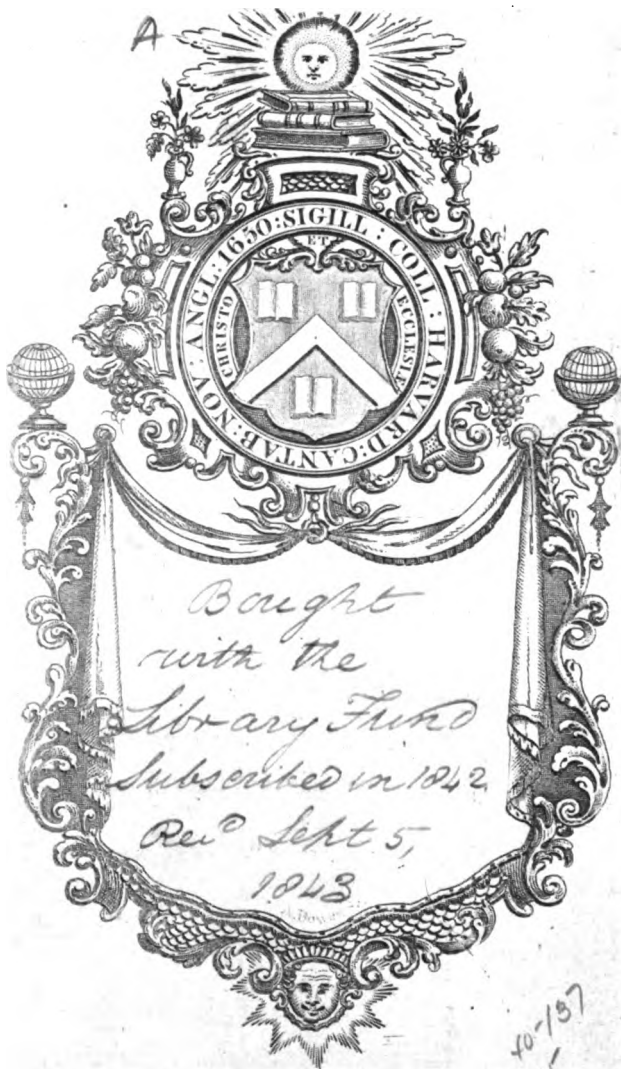 A
SIGILL : COLL : HARVARD : CANTAB : NOV : ANGL : 1650 :
CHRISTO ET ECCLESIÆ
Bought
with the
Library Fund
Subscribed in 1842
Rec^d Sept 5,
1843